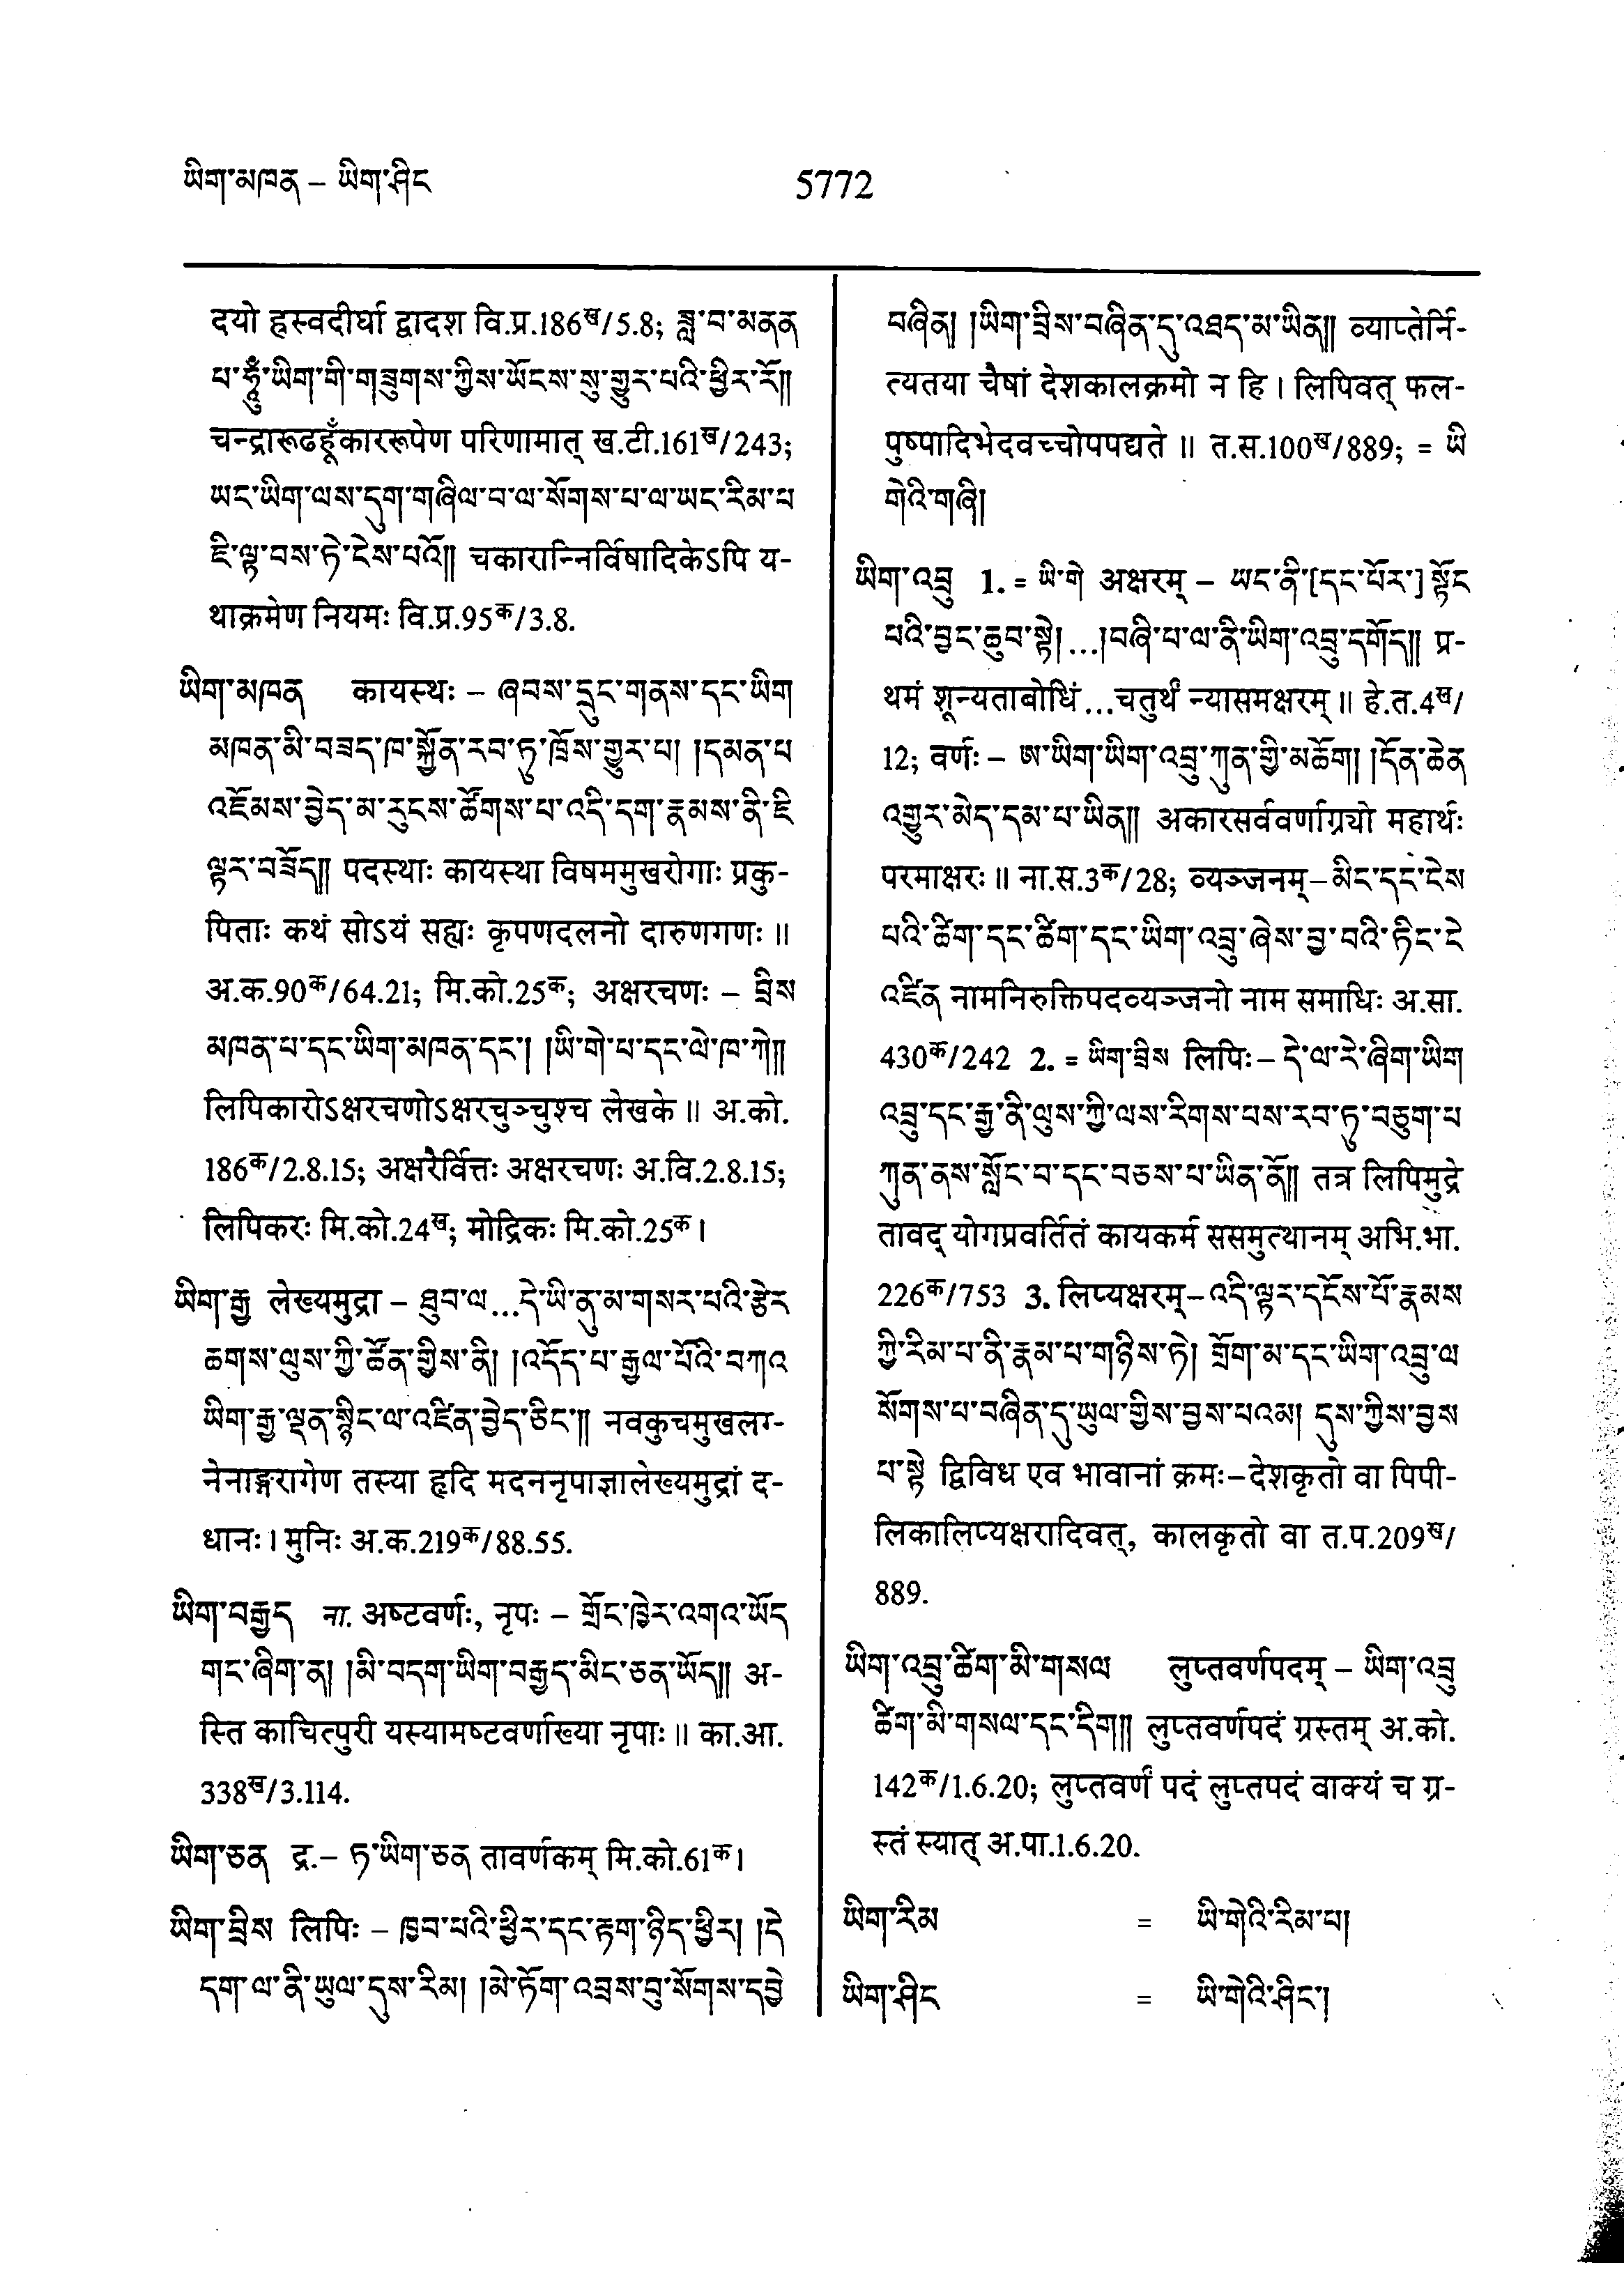 ཡིག་མཁན – ཡིག་ཤིང
5772
दयो ह्रस्वदीर्घा द्वादश वि.प्र.186ख/5.8; ཟླ་བ་མནན
པ་ཧཱུྃ་ཡིག་གི་གཟུགས་ཀྱིས་ཡོངས་སུ་གྱུར་པའི་ཕྱིར་རོ༎
चन्द्रारूढहूँकाररूपेण परिणामात् ख.टी.161ख/243;
ཡང་ཡིག་ལས་དུག་གཞིལ་བ་ལ་སོགས་པ་ལ་ཡང་རིམ་པ
ཇི་ལྟ་བས་ཏེ་ངེས་པའོ༎ चकारान्निर्विषादिकेऽपि य-
थाक्रमेण नियमः वि.प्र.95क/3.8.
ཡིག་མཁན कायस्थः – ཞབས་དྲུང་གནས་དང་ཡིག
མཁན་མི་བཟད་ཁ་སྐྱོན་རབ་ཏུ་ཁྲོས་གྱུར་པ། །དམན་པ
འཇོམས་བྱེད་མ་རུངས་ཚོགས་པ་འདི་དག་རྣམས་ནི་ཇི
ལྟར་བཟོད༎ पदस्थाः कायस्था विषममुखरोगाः प्रकु-
पिताः कथं सोऽयं सह्यः कृपणदलनो दारुणगणः ॥
अ.क.90क/64.21; मि.को.25क; अक्षरचणः – བྲིས
མཁན་པ་དང་ཡིག་མཁན་དང་། །ཡི་གེ་པ་དང་ལེ་ཁ་ཀེ༎
लिपिकारोऽक्षरचणोऽक्षरचुञ्चुश्च लेखके ॥ अ.को.
186क/2.8.15; अक्षरैर्वित्तः अक्षरचणः अ.वि.2.8.15;
लिपिकरः मि.को.24ख; मोद्रिकः मि.को.25क।
ཡིག་རྒྱ लेख्यमुद्रा – ཐུབ་ལ...དེ་ཡི་ནུ་མ་གསར་པའི་རྩེར
ཆགས་ལུས་ཀྱི་ཚོན་གྱིས་ནི། །འདོད་པ་རྒྱལ་པོའི་བཀའ
ཡིག་རྒྱ་ལྡན་སྙིང་ལ་འཛིན་བྱེད་ཅིང་༎ नवकुचमुखलग-
नेनाङ्गरागेण तस्या हृदि मदननृपाज्ञालेख्यमुद्रां द-
धानः। मुनिः अ.क.219क/88.55.
ཡིག་བརྒྱད ना. अष्टवर्णः, नृपः – གྲོང་ཁྱེར་འགའ་ཡོད
གང་ཞིག་ན། །མི་བདག་ཡིག་བརྒྱད་མིང་ཅན་ཡོད༎ अ-
स्ति काचित्पुरी यस्यामष्टवर्णाख्या नृपाः॥ का.आ.
338ख/3.114.
ཡིག་ཅན द्र.– ཏ་ཡིག་ཅན तावर्णकम् मि.को.61क।
ཡིག་བྲིས लिपिः – ཁྱབ་པའི་ཕྱིར་དང་རྟག་ཉིད་ཕྱིར། །དེ
དག་ལ་ནི་ཡུལ་དུས་རིམ། །མེ་ཏོག་འབྲས་བུ་སོགས་དབྱེ
བཞིན། །ཡིག་བྲིས་བཞིན་དུ་འཐད་མ་ཡིན༎ व्याप्तेर्नि-
त्यतया चैषां देशकालक्रमो न हि। लिपिवत् फल-
पुष्पादिभेदवच्चोपपद्यते ॥ त.स.100ख/889; = ཡི
གེའི་གཞི།
ཡིག་འབྲུ 1. = ཡི་གེ अक्षरम् – ཡང་ནི་[དང་པོར་]སྟོང
པའི་བྱང་ཆུབ་སྟེ།...།བཞི་པ་ལ་ནི་ཡིག་འབྲུ་དགོད༎ प्र-
थमं शून्यताबोधिं...चतुर्थं न्यासमक्षरम्॥ हे.त.4ख/
12; वर्णः – ཨ་ཡིག་ཡིག་འབྲུ་ཀུན་གྱི་མཆོག། །དོན་ཆེན
འགྱུར་མེད་དམ་པ་ཡིན༎ अकारसर्ववर्णाग्र्यो महार्थः
परमाक्षरः॥ ना.स.3क/28; व्यञ्जनम् – མིང་དང་ངེས
པའི་ཚིག་དང་ཚིག་དང་ཡིག་འབྲུ་ཞེས་བྱ་བའི་ཏིང་ངེ
འཛིན नामनिरुक्तिपदव्यञ्जनो नाम समाधिः अ.सा.
430क/242 2. = ཡིག་བྲིས लिपिः – དེ་ལ་རེ་ཞིག་ཡིག
འབྲུ་དང་རྒྱ་ནི་ལུས་ཀྱི་ལས་རིགས་པས་རབ་ཏུ་བཅུག་པ
ཀུན་ནས་སློང་བ་དང་བཅས་པ་ཡིན་ནོ༎ तत्र लिपिमुद्रे
तावद् योगप्रवर्तितं कायकर्म ससमुत्थानम् अभि.भा.
226क/753 3. लिप्यक्षरम् – འདི་ལྟར་དངོས་པོ་རྣམས
ཀྱི་རིམ་པ་ནི་རྣམ་པ་གཉིས་ཏེ། གྲོག་མ་དང་ཡིག་འབྲུ་ལ
སོགས་པ་བཞིན་དུ་ཡུལ་གྱིས་བྱས་པའམ། དུས་ཀྱིས་བྱས
པ་སྟེ द्विविध एव भावानां क्रमः – देशकृतो वा पिपी-
लिकालिप्यक्षरादिवत्, कालकृतो वा त.प.209ख/
889.
ཡིག་འབྲུ་ཚིག་མི་གསལ लुप्तवर्णपदम् – ཡིག་འབྲུ
ཚིག་མི་གསལ་དང་དིག༎ लुप्तवर्णपदं ग्रस्तम् अ.को.
142क/1.6.20; लुप्तवर्णं पदं लुप्तपदं वाक्यं च ग्र-
स्तं स्यात् अ.पा.1.6.20.
ཡིག་རིམ = ཡི་གེའི་རིམ་པ།
ཡིག་ཤིང = ཡི་གེའི་ཤིང་།